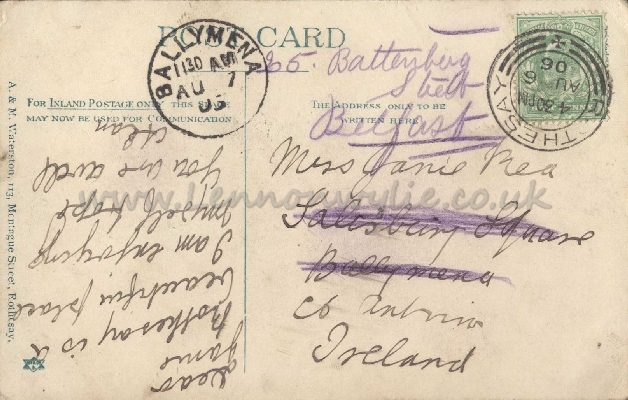 POST CARD
BALLYMENA
1130 AM
AU 7
06
ROTHESAY
4-30PM
AU 6
06
65. Battenberg
Street
Belfast
FOR INLAND POSTAGE ONLY THIS
MAY NOW BE USED FOR COMMUNICATION
THE ADDRESS ONLY TO BE
WRITTEN HERE
Miss Janie Rea
Salisbury Square
Ballymena
Co Antrim
Ireland
Dear
Janie
Rothesay is a
beautiful place
I am enjoying
myself hope
you are well
Jean
A. & M. Waterston, 113, Montague Street, Rothesay.
www.lennonwylie.co.uk